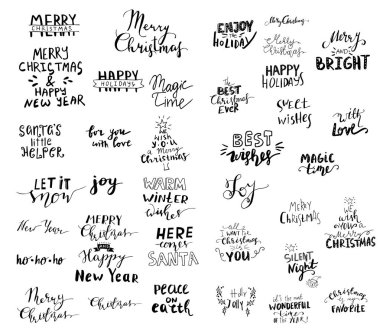 MERRY
CHRISTMAS
Merry
Christmas
ENJOY
THE
HOLIDAY
Merry Christmas
Merry
Christmas
Merry
AND
BRIGHT
MERRY
CHRISTMAS
&
HAPPY
NEW YEAR
HAPPY
HOLIDAYS
Magic
time
The
BEST
Christmas
EVER
HAPPY
HOLIDAYS
SWEET
wishes
With
LOVE
SANTA'S
little
HELPER
for you
with love
WISH
YOU
a Merry
Christmas
BEST
wishes
MAGIC
time
LET IT
Snow
joy
WARM
WINTER
wishes
Joy
MERRY
CHRISTMAS
WISH
YOU A
MERRY
CHRISTMAS
New Year
MERRY
Christmas
HERE
comes
SANTA
all I
WANT FOR
Christmas
is
YOU
ho-ho-ho
Happy
New Year
SILENT
Night
Merry
Christmas
Christmas
PEACE
on
earth
Holly
Jolly
it's the most
WONDERFUL
time
Christmas
is my
FAVORITE